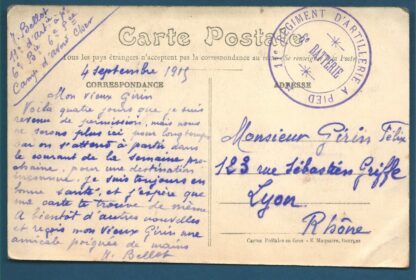 H. Bellot
11e d'Artie à p.
6e Bie 6e Pce
Camp d'Avord Cher
Carte Postale
Tous les pays étrangers n'acceptent pas la correspondance au recto (Se renseigner à la
CORRESPONDANCE
ADRESSE
11e REGIMENT D'ARTILLERIE A PIED
6e
BATTERIE
4 septembre 1915
Mon vieux Girin
Voilà quatre jours que je suis
revenu de permission, mais nous
ne serons plus ici pour longtemps
car on s'attend à partir dans
le courant de la semaine pro-
chaine, pour une destination
inconnue. Je suis toujours en
bonne santé, et j'espère que
ma carte te trouve de même.
A bientôt d'autres nouvelles
et reçois mon vieux Girin une
amicale poignée de mains
H. Bellot
Monsieur Girin Félix
123 rue Sébastien Griffe
Lyon
Rhône
Cartes Postales en Gros - E. Maquaire, Georges